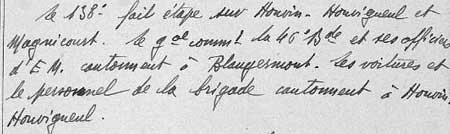 le 138e fait étape sur Houvin-Houvigneul et
Magnicourt. le gal commt la 46e Bde et ses officiers
d'E.M. cantonnent à Blangermont. les voitures et
le personnel de la brigade cantonnent à Houvin-
Houvigneul.